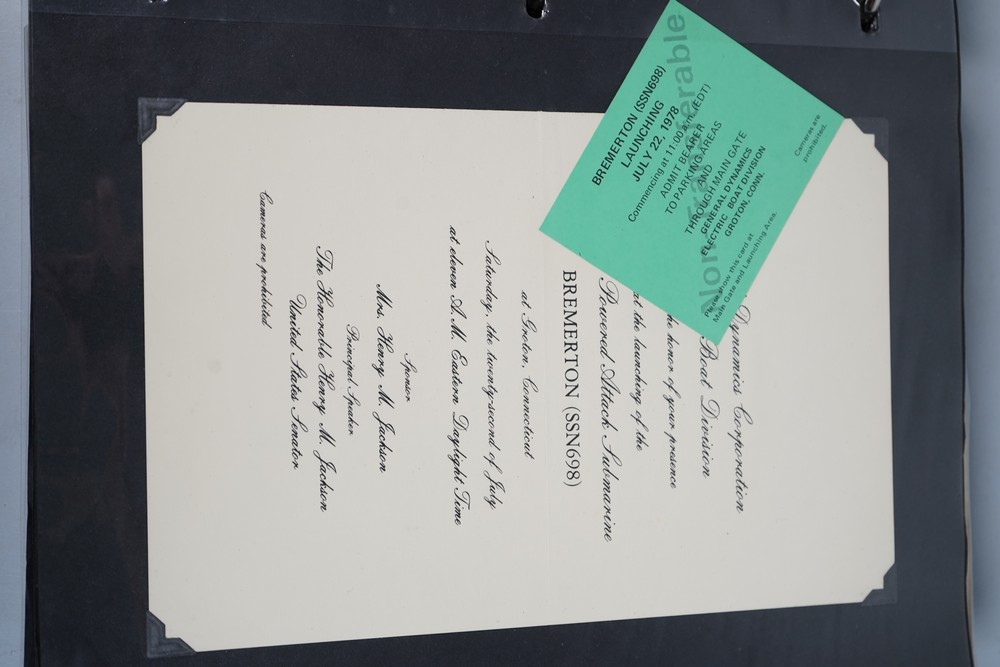 BREMERTON (SSN698)
LAUNCHING
JULY 22, 1978
Commencing at 11:00 a.m. (EDT)
ADMIT BEARER
TO PARKING AREAS
AND
THROUGH MAIN GATE
GENERAL DYNAMICS
ELECTRIC BOAT DIVISION
GROTON, CONN.
Please show this card at
Main Gate and Launching Area.
Cameras are
prohibited.
Non-transferable
Dynamics Corporation
Boat Division
the honor of your presence
at the launching of the
Powered Attack Submarine
BREMERTON (SSN698)
at Groton, Connecticut
Saturday, the twenty-second of July
at eleven A.M. Eastern Daylight Time
Sponsor
Mrs. Henry M. Jackson
Principal Speaker
The Honorable Henry M. Jackson
United States Senator
Cameras are prohibited